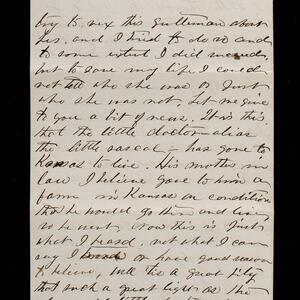 try to vex this gentleman about
her. and I tried to do so and
to some extent I did succeed,
but to save my life I could
not tell who she was or just
who she was not. Let me give
to you a bit of news. It is this.
that the little doctor alias
the little rascal – has gone to
Kansas to live. His mother in
law I believe gave to him a
farm in Kansas on condition
that he would go there and live,
so he went. Now this is just
what I heard, not what I can
say I know or have good reason
to believe, well tis a great pity
that such a great light as the